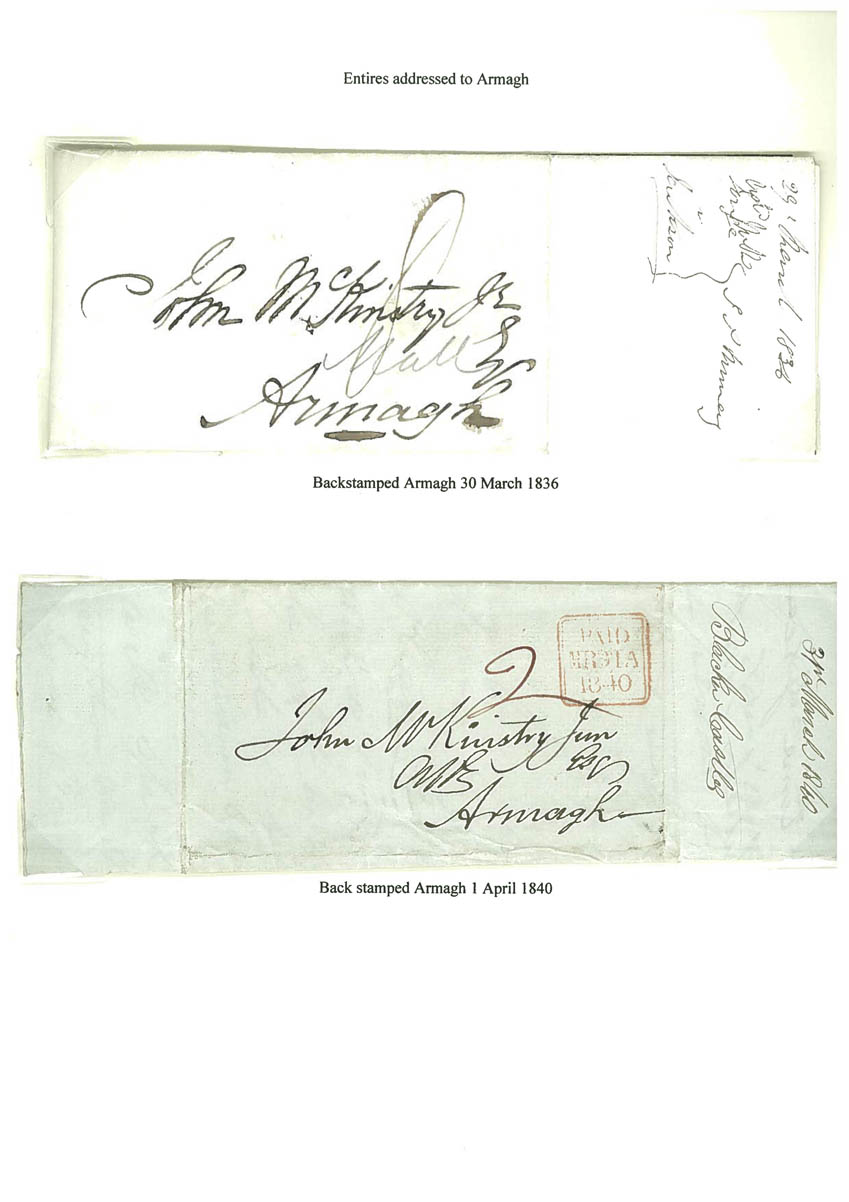 Entires addressed to Armagh
John McKinstry Jr
Esq
Mall
Armagh
29th March 1836
Backstamped Armagh 30 March 1836
PAID
MR31A
1840
2
John McKinstry Jun
Esq
Armagh
31st March 1840
Back stamped Armagh 1 April 1840